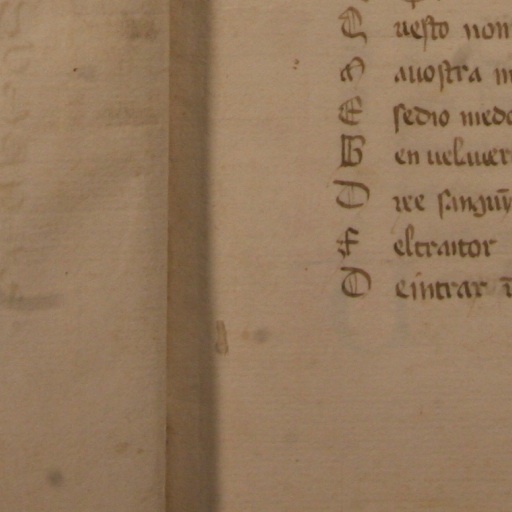 C uesto non
A auostra m
E sedio medo
B en uel uer
D ire sangu
E eltraitor
D eintrar